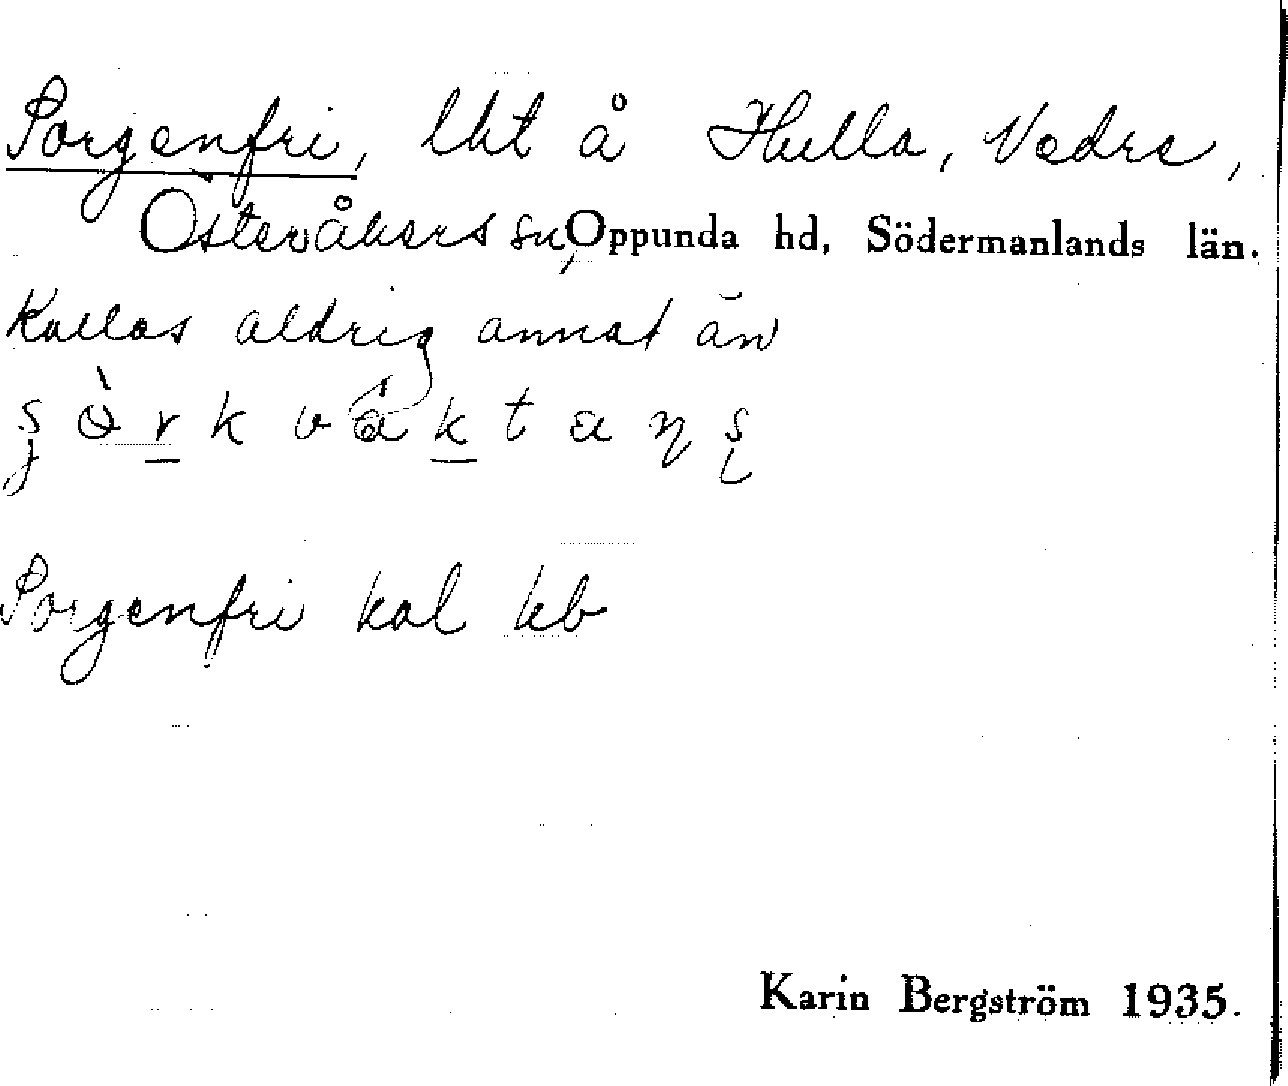 Sorgenfri, lht å Hulla, Vedre,
Österåkers sn, Oppunda hd, Södermanlands län.
Kallas aldrig annat än
Sorgenfri kal kb
Karin Bergström 1935.